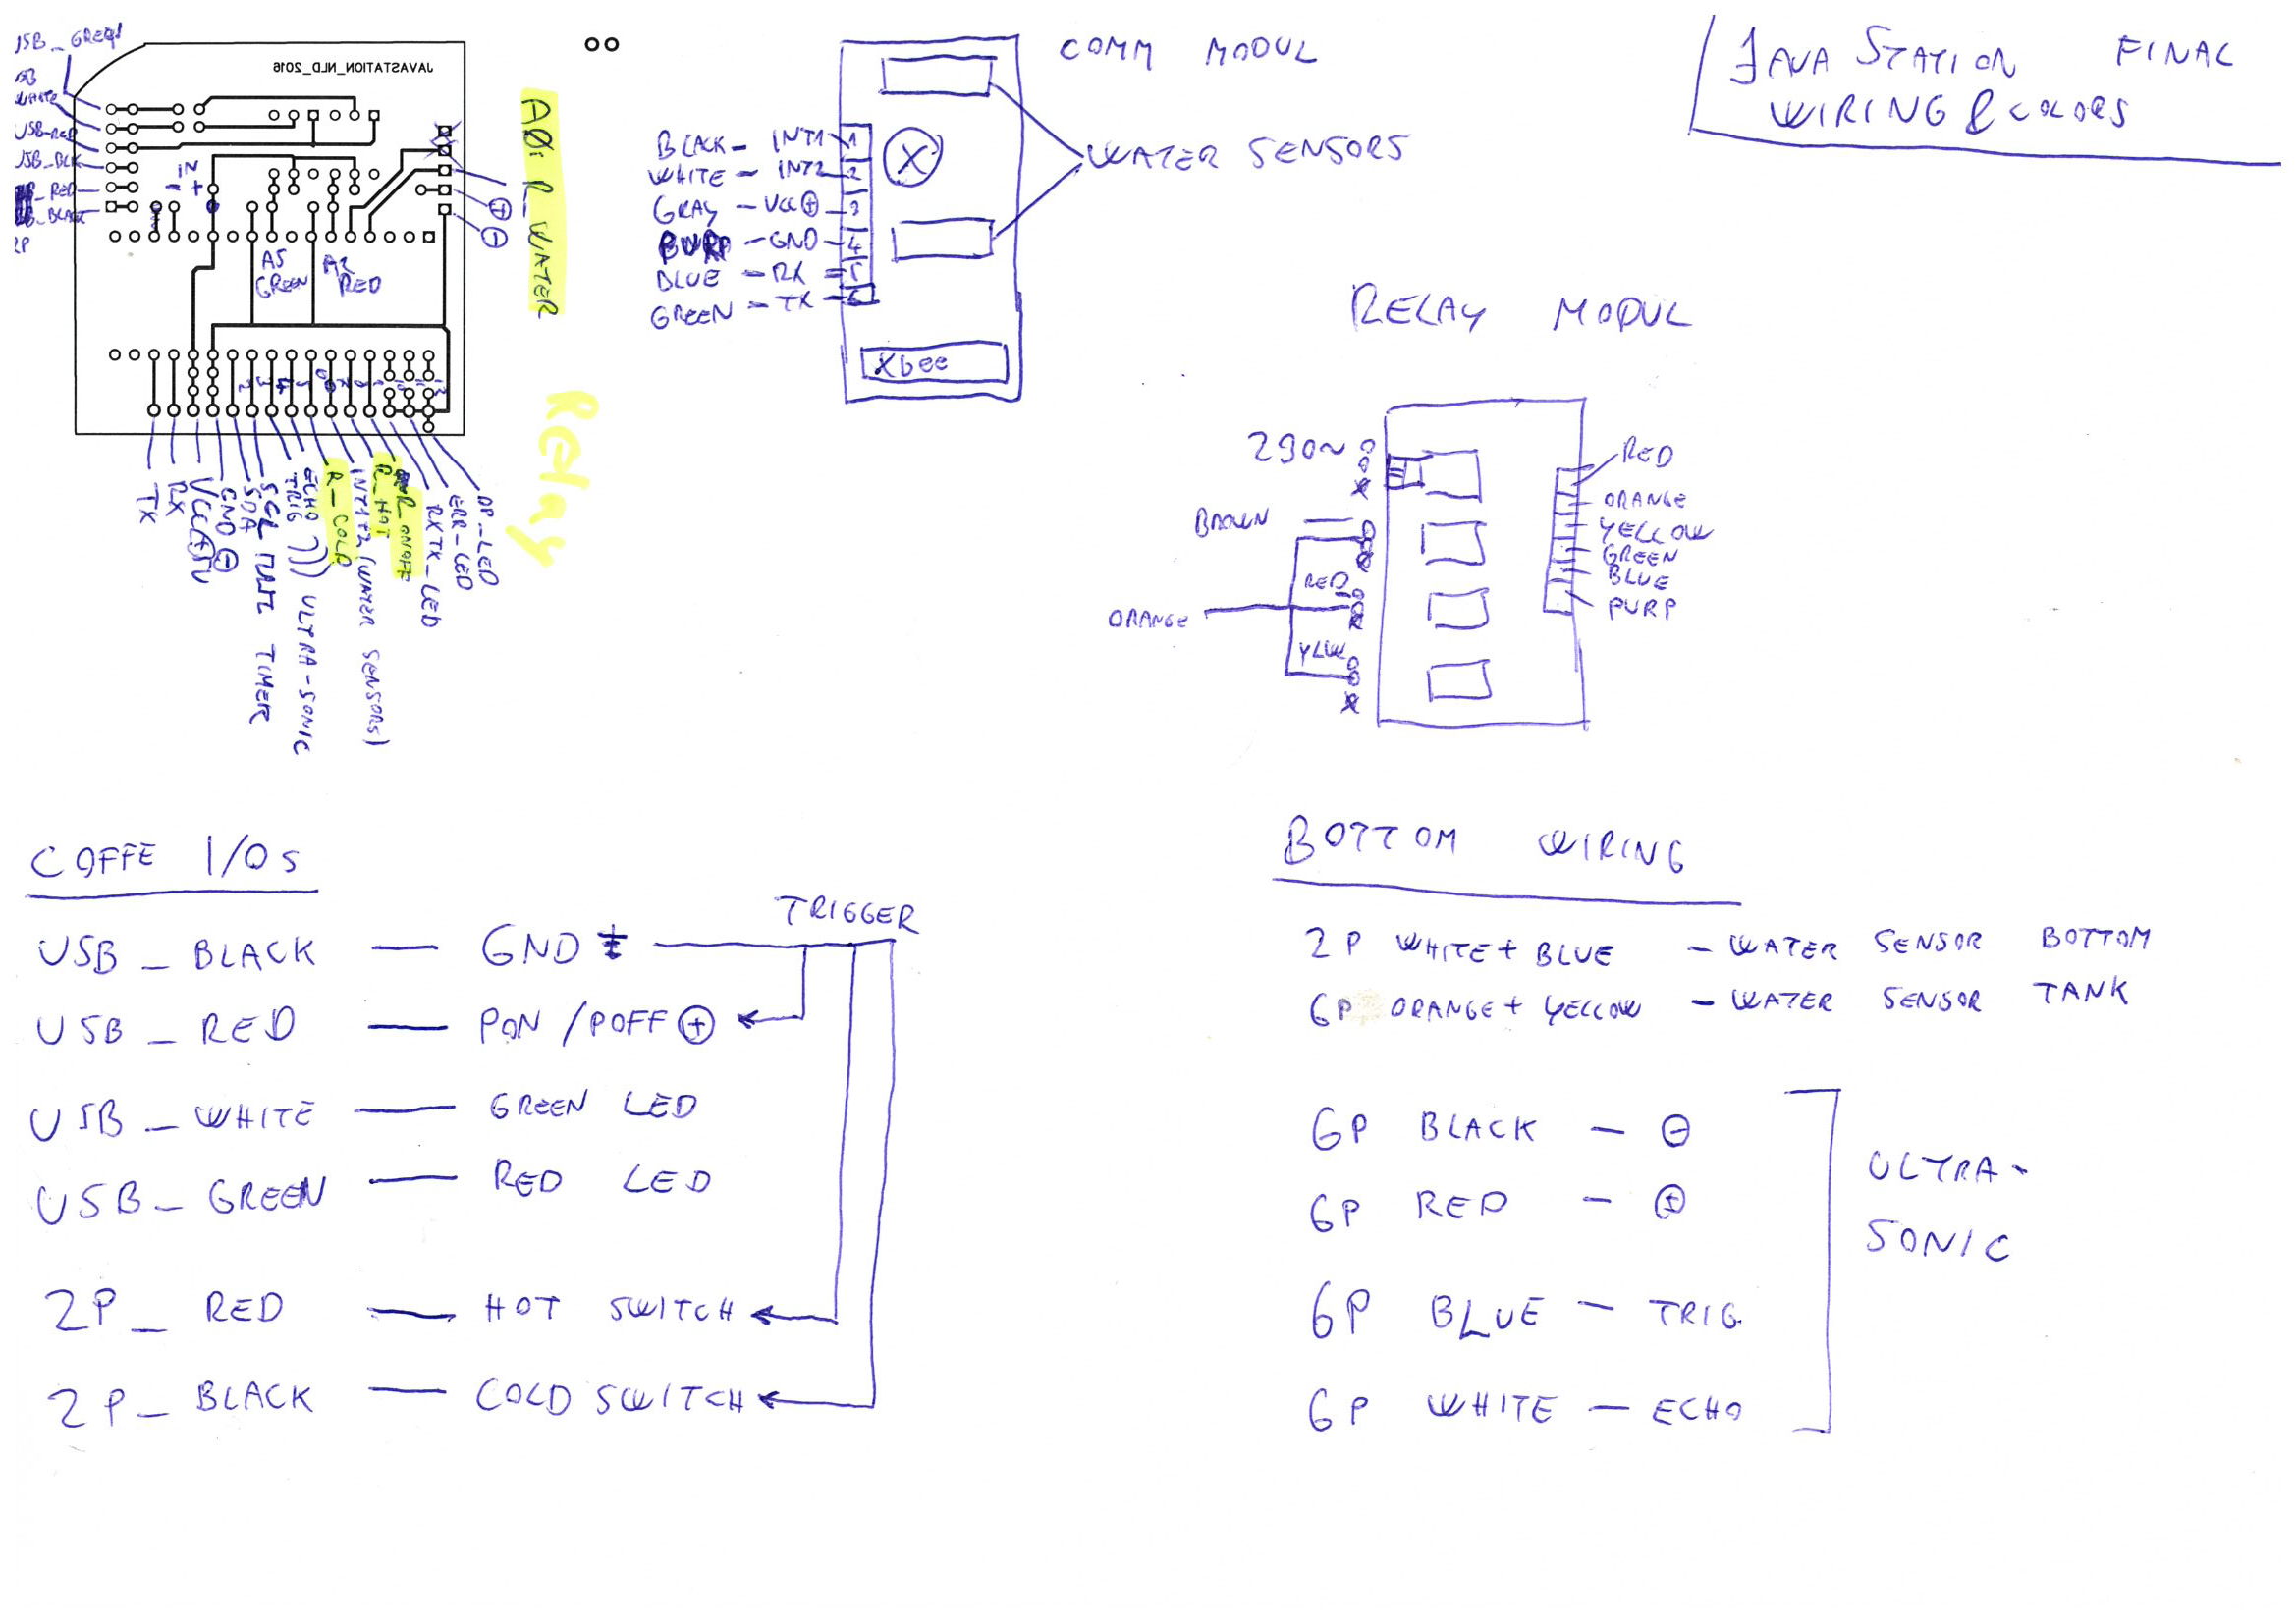 JAVA STATION FINAL
WIRING & COLORS
JAVASTATION_NLD_2016
USB_RED
IN
- +
A5
GREEN
A2
RED
+
-
A0: R_WATER
Relay
TX
RX
VCC
GND -
SDA
SCL
TIMER
TRIG
ECHO
ULTRA-SONIC
R_COLD
INT1+2 (WATER SENSORS)
R_HOT
R_ON/OFF
RXTX_LED
ERR_LED
OP_LED
COMM MODUL
WATER SENSORS
BLACK - INT1 1
WHITE - INT2 2
GRAY - VCC + 3
PURP - GND - 4
BLUE - RX 5
GREEN - TX 6
X
Xbee
RELAY MODUL
230~
BROWN
RED
ORANGE
YLW
RED
ORANGE
YELLOW
GREEN
BLUE
PURP
COFFE I/Os
TRIGGER
USB_BLACK — GND
USB_RED — PON/POFF +
USB_WHITE — GREEN LED
USB_GREEN — RED LED
2P_RED — HOT SWITCH
2P_BLACK — COLD SWITCH
BOTTOM WIRING
2P WHITE + BLUE - WATER SENSOR BOTTOM
6P ORANGE + YELLOW - WATER SENSOR TANK
6P BLACK - -
6P RED - +
6P BLUE - TRIG
6P WHITE - ECHO
ULTRA-
SONIC